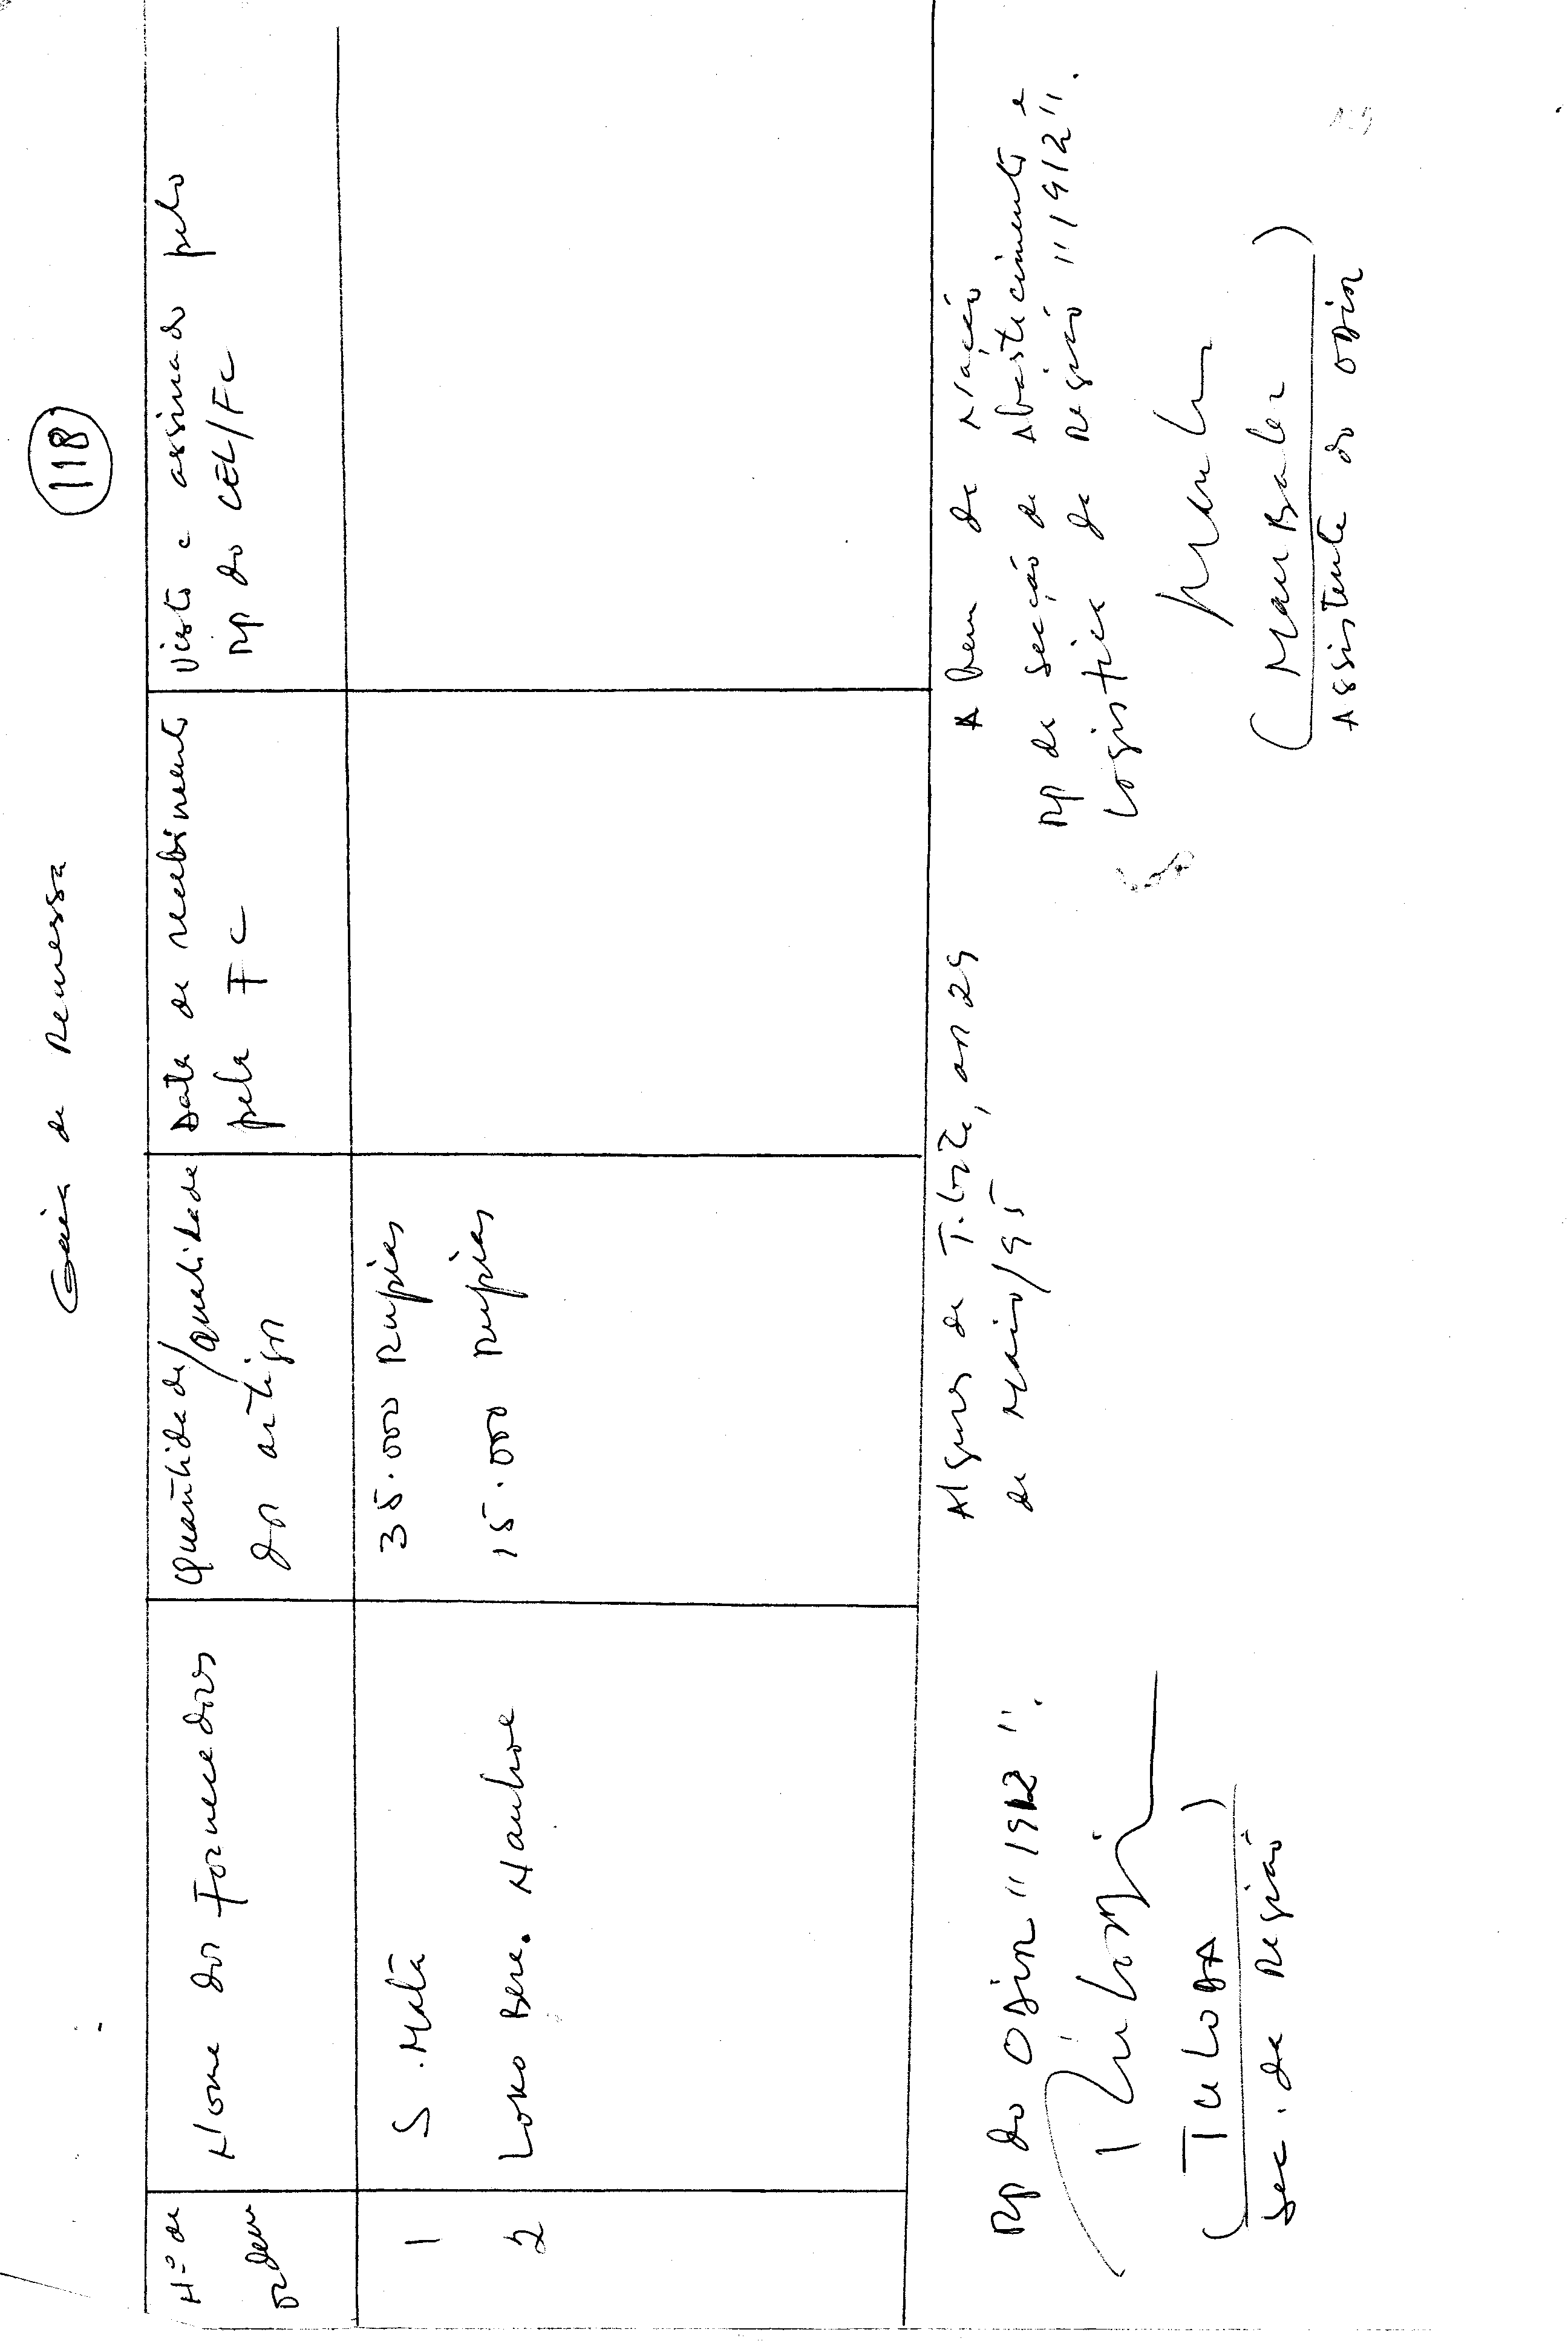 118
Guia de Remessa
Nº de ordem
Nome dos Fornecedores
Quantidade/qualidade
dos artigos
Data de recebimento
pela FC
Visto e assinado pelo
Rp do CEL/FC
1 S. Matã 35.000 Rupias
2 Loko Bere. Nauhoe 15.000 Rupias
Algures de T. Leste, aos 29
de Maio/95
A bem da Nação
Rp da secção de Abastecimento e
Logistica da Região "1912".
(Mau Baler)
Assistente do ODIR
Rp do ODIR "1912".
(TULODA)
Sec. da Região